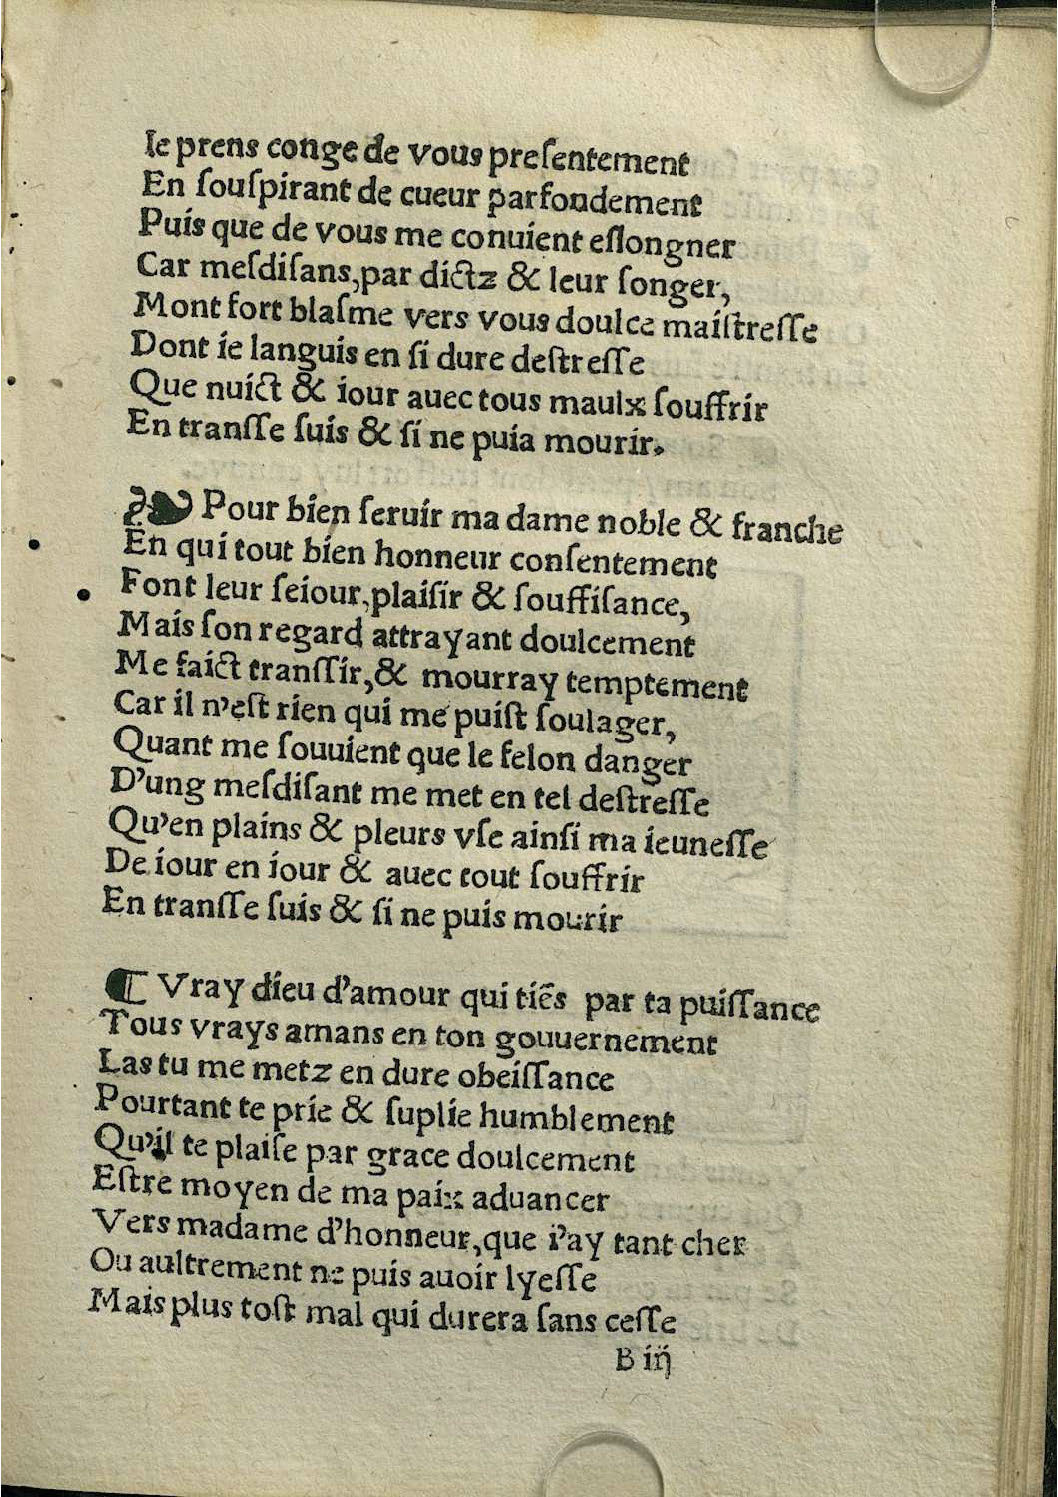 Ie prens conge de vous preſentement
En ſouſpirant de cueur parfondement
Puis que de vous me conuient eſlongner
Car meſdiſans,par dictz & leur ſonger,
Mont fort blaſme vers vous doulce maiſtreſſe
Dont ie languis en ſi dure deſtreſſe
Que nuict & iour auec tous maulx ſouffrir
En tranſſe ſuis & ſi ne puia mourir.
❧ Pour bien ſeruir ma dame noble & franche
En qui tout bien honneur conſentement
Font leur ſeiour,plaiſir & ſouffiſance,
Mais ſon regard attrayant doulcement
Me faict tranſſir,& mourray temptement
Car il n'eſt rien qui me puiſt ſoulager,
Quant me ſouuient que le felon danger
D'ung meſdiſant me met en tel deſtreſſe
Qu'en plains & pleurs vſe ainſi ma ieuneſſe
De iour en iour & auec tout ſouffrir
En tranſſe ſuis & ſi ne puis mourir
¶ Vray dieu d'amour qui tiẽs par ta puiſſance
Tous vrays amans en ton gouuernement
Las tu me metz en dure obeiſſance
Pourtant te prie & ſuplie humblement
Qu'il te plaiſe par grace doulcement
Eſtre moyen de ma paix aduancer
Vers madame d'honneur,que i'ay tant cher
Ou aultrement ne puis auoir lyeſſe
Mais plus toſt mal qui durera ſans ceſſe
B iij